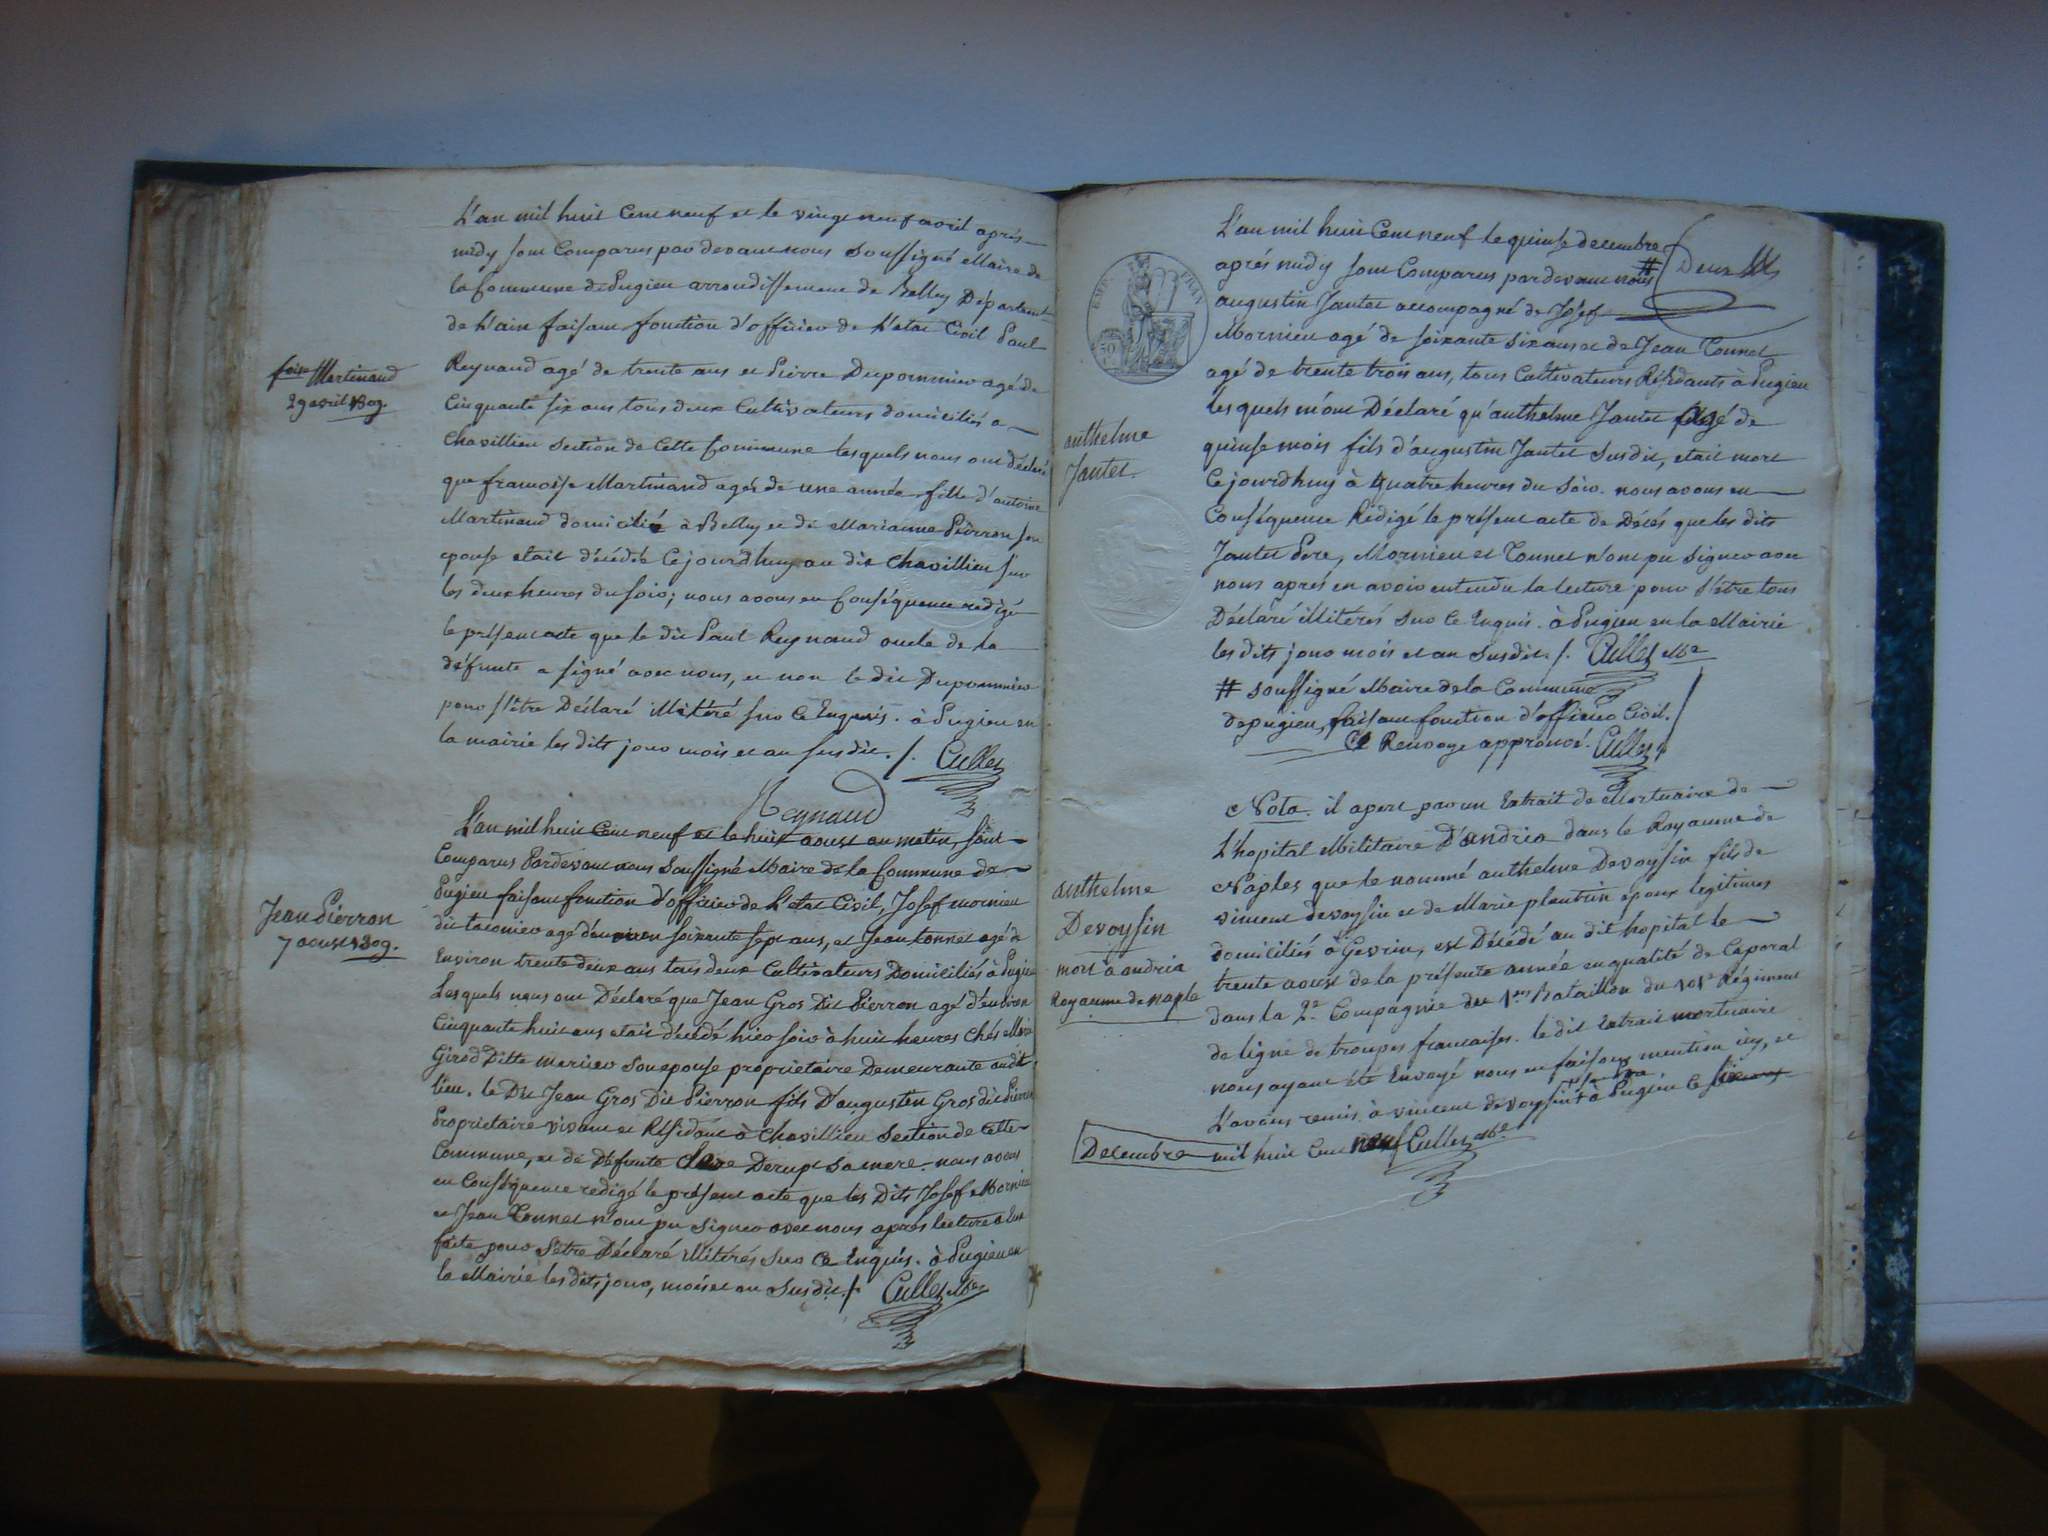 L'an mil huit Cent neuf et le vingt neuf avril après
midy sont Comparus par devant nous soussigné Maire de
la Commune de Pugieu arrondissement de Belley Département
de L'ain faisant fonction d'officier de L'etat Civil Paul
Reynaud agé de trente ans et Pierre Dupommier agé de
Cinquante six ans tous deux Cultivateurs domiciliés a
Chavillieu section de Cette Commune lesquels nous ont déclaré
que francoise Martinand agée de une année fille d'antoine
Martinand domicilié à Belley et de Marianne Pierron son
epouse etait décédée Cejourdhuy au dit Chavillieu sur
les deux heures du soir; nous avons en Conséquence redigé
le présent acte que le dit Paul Reynaud oncle de la
défunte a signé avec nous, et non le dit Dupommier
pour s'être Déclaré illitéré sur Ce Enquis. à Pugieu en
la mairie les dits jour mois et an susdit. /. Cullet
Reynaud
foise Martinand
29 avril 1809.
L'an mil huit Cent neuf et le huit aoust au matin, sont
Comparus Pardevant nous Soussigné Maire de la Commune de
Pugieu faisant fonction d'officier de L'etat Civil, Josef mornieu
dit agé d'environ soixante sept ans, et Jean tonnet agé d
Environ trente deux ans tous deux Cultivateurs Domiciliés à Pugieu
Lesquels nous ont Déclaré que Jean Gros Dit Pierron agé d'environ
Cinquante huit ans etait décédé hier soir à huit heures Chés Marie
Girod Ditte mersier son epouse propriétaire Demeurante audit
lieu. le Dit Jean Gros Dit Pierron fils D'augustin Gros dit Pierron
Propriétaire vivant et Résidant à Chavillieu Section de Cette
Commune, et de Défunte Derupt sa mere. nous avons
en Conséquence redigé le présent acte que les Dits Josef Mornieu
et Jean Tonnet n'ont pu signer avec nous après lecture a Eux
faite pour s'être Déclaré illitérés sur Ce Enquis. à Pugieu en
la Mairie les dits jour, mois et an Susdit. /. Cullet Mre
Jean Pierron
7 aoust 1809.
L'an mil huit Cent neuf le quinse decembre
après midy sont Comparus pardevant nous #
augustin Jantet accompagné de Josef
Mornieu agé de soixante six ans et de Jean Tonnet
agé de trente trois ans, tous Cultivateurs Résidants à Pugieu
lesquels m'ont Déclaré qu'anthelme Jantet agé de
quinse mois fils d'augustin Jantet Susdit, etait mort
Cejourdhuy à quatre heures du Soir. nous avons en
Conséquence Rédigé le présent acte de Décés que les dits
Jantet Pere, Mornieu et Tonnet n'ont pu signer avec
nous après en avoir entendu la lecture pour s'être tous
Déclaré illiterés sur Ce Enquis. à Pugieu en la Mairie
les dits jour mois et an Susdit. /. Cullet Mre
# soussigné Maire de la Commune
de pugieu, faisant fonction d'officier Civil.
Ce Renvoye approuvé. Cullet
Deux
EMP. FRAN
50
anthelme
Jantet.
Nota. il apert par un Extrait de Mortuaire de
L'hopital Militaire D'andria dans le Royaume de
Naples que le nommé anthelme Devoysin fils de
vincent devoysin et de Marie plantin epoux legitimes
domiciliés à Gevrin, est Décédé au dit hopital le
trente aoust de la présente année en qualité de Caporal
dans la 2e Compagnie du 1er Bataillon du 101e Régiment
de ligne de troupes francaises. le dit Extrait mortuaire
nous ayant été Envoyé nous en faisons mention icy, et
L'avons remis à vincent devoysin à Pugieu Ce
Decembre mil huit Cent neuf Cullet Mre
anthelme
Devoysin
mort à andria
Royaume de naple